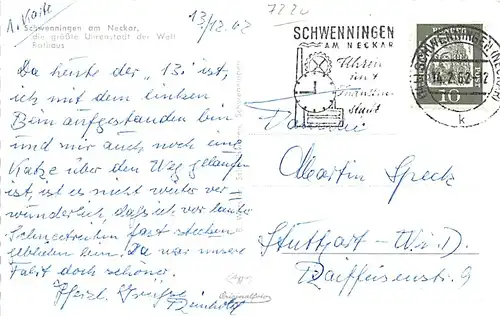 1. Karte
13/12.62
7220
Schwenningen am Neckar,
die größte Uhrenstadt der Welt
Rathaus
Da heute der "13." ist,
ich mit dem linken
Bein aufgestanden bin
und mir auch noch eine
Katze über den Weg gelaufen
ist, ist es nicht weiter ver-
wunderlich, daß ich vor lauter
Schneetreiben fast stecken
geblieben bin. Da war unsere
Fahrt doch schöner.
Herzl. Grüße
Reinhold
SCHWENNINGEN
AM NECKAR
Uhren
und
Industrie
stadt
SCHWENNINGEN (NECKAR)
14.2.62-12
k
10
Familie
Martin Speck
Stuttgart-W.D.
Raiffeisenstr. 9
Originalfoto